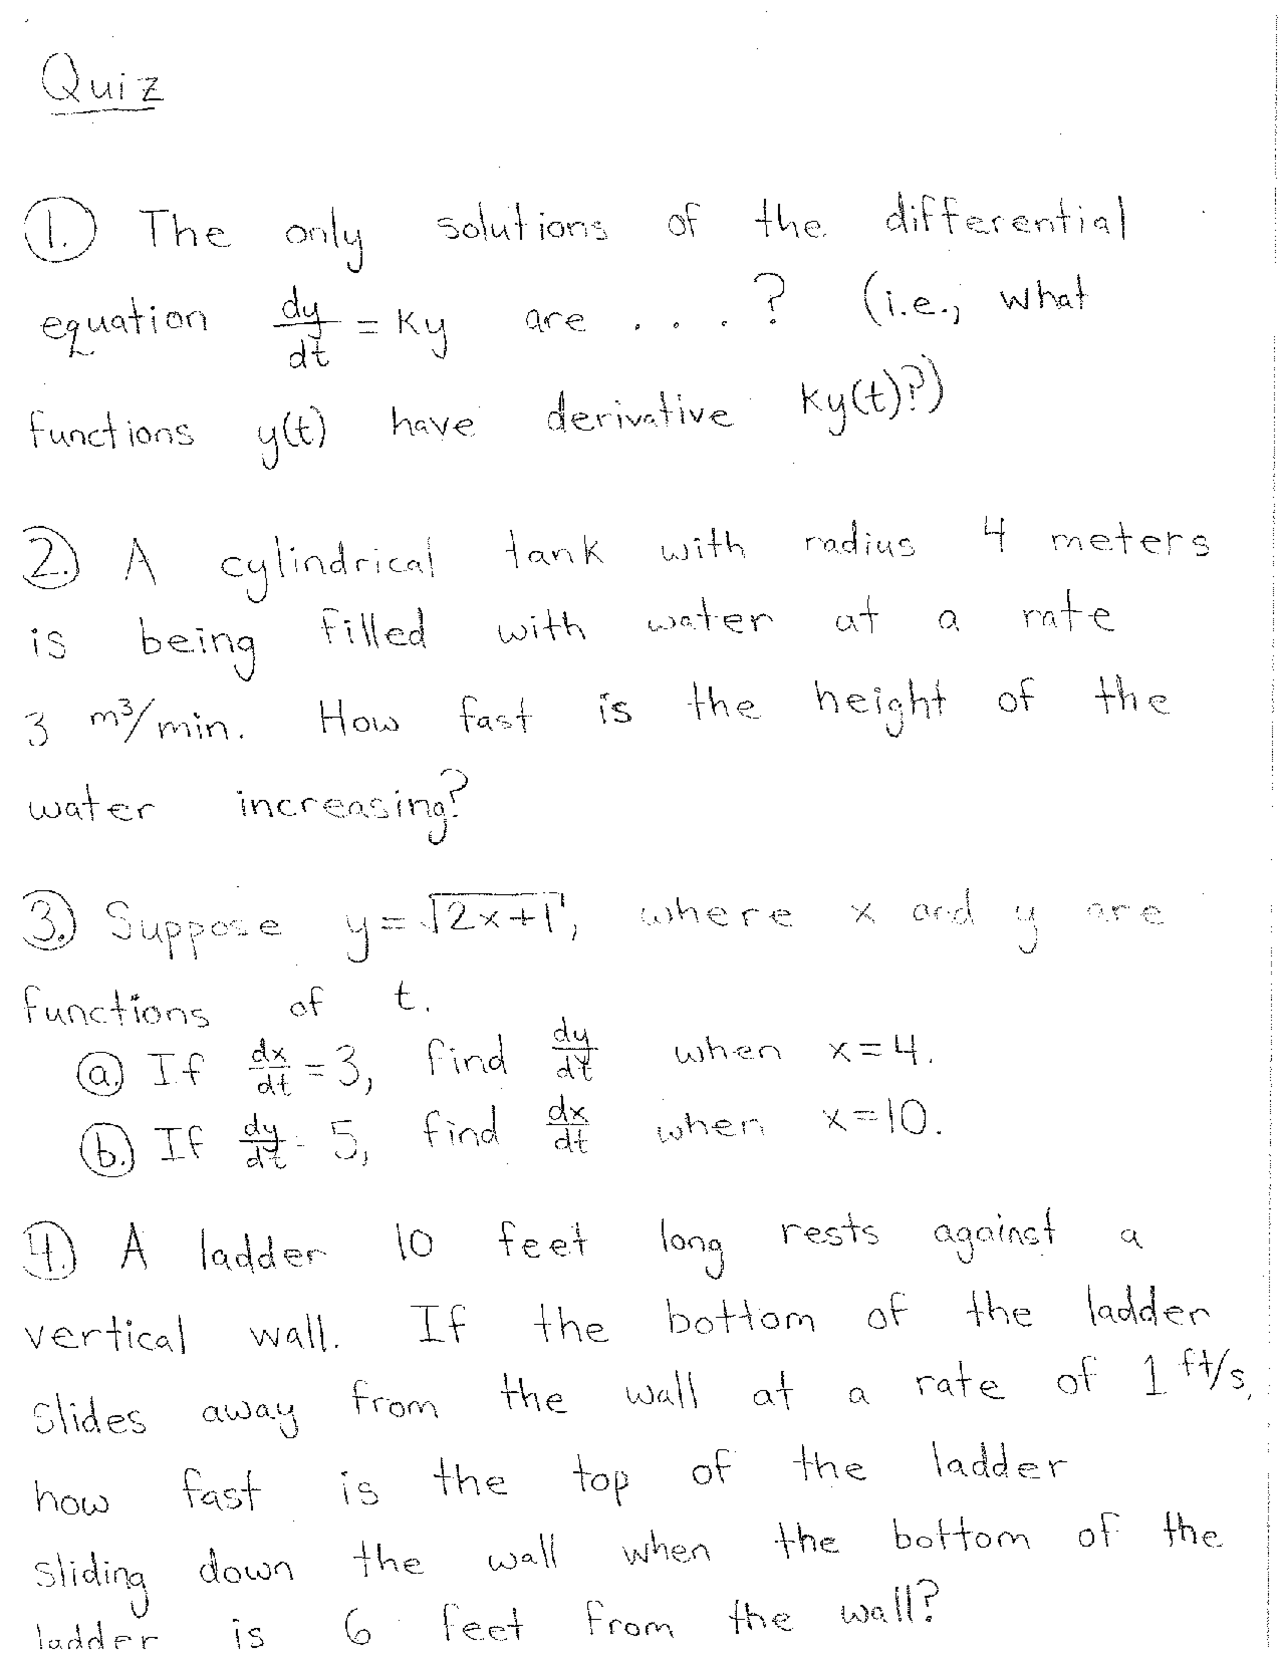 Quiz
1. The only solutions of the differential
equation dy/dt = Ky are . . . ? (i.e., what
functions y(t) have derivative Ky(t)?)
2. A cylindrical tank with radius 4 meters
is being filled with water at a rate
3 m³/min. How fast is the height of the
water increasing?
3. Suppose y = √(2x+1), where x and y are
functions of t.
a. If dx/dt = 3, find dy/dt when x=4.
b. If dy/dt = 5, find dx/dt when x=10.
4. A ladder 10 feet long rests against a
vertical wall. If the bottom of the ladder
slides away from the wall at a rate of 1 ft/s,
how fast is the top of the ladder
sliding down the wall when the bottom of the
ladder is 6 feet from the wall?